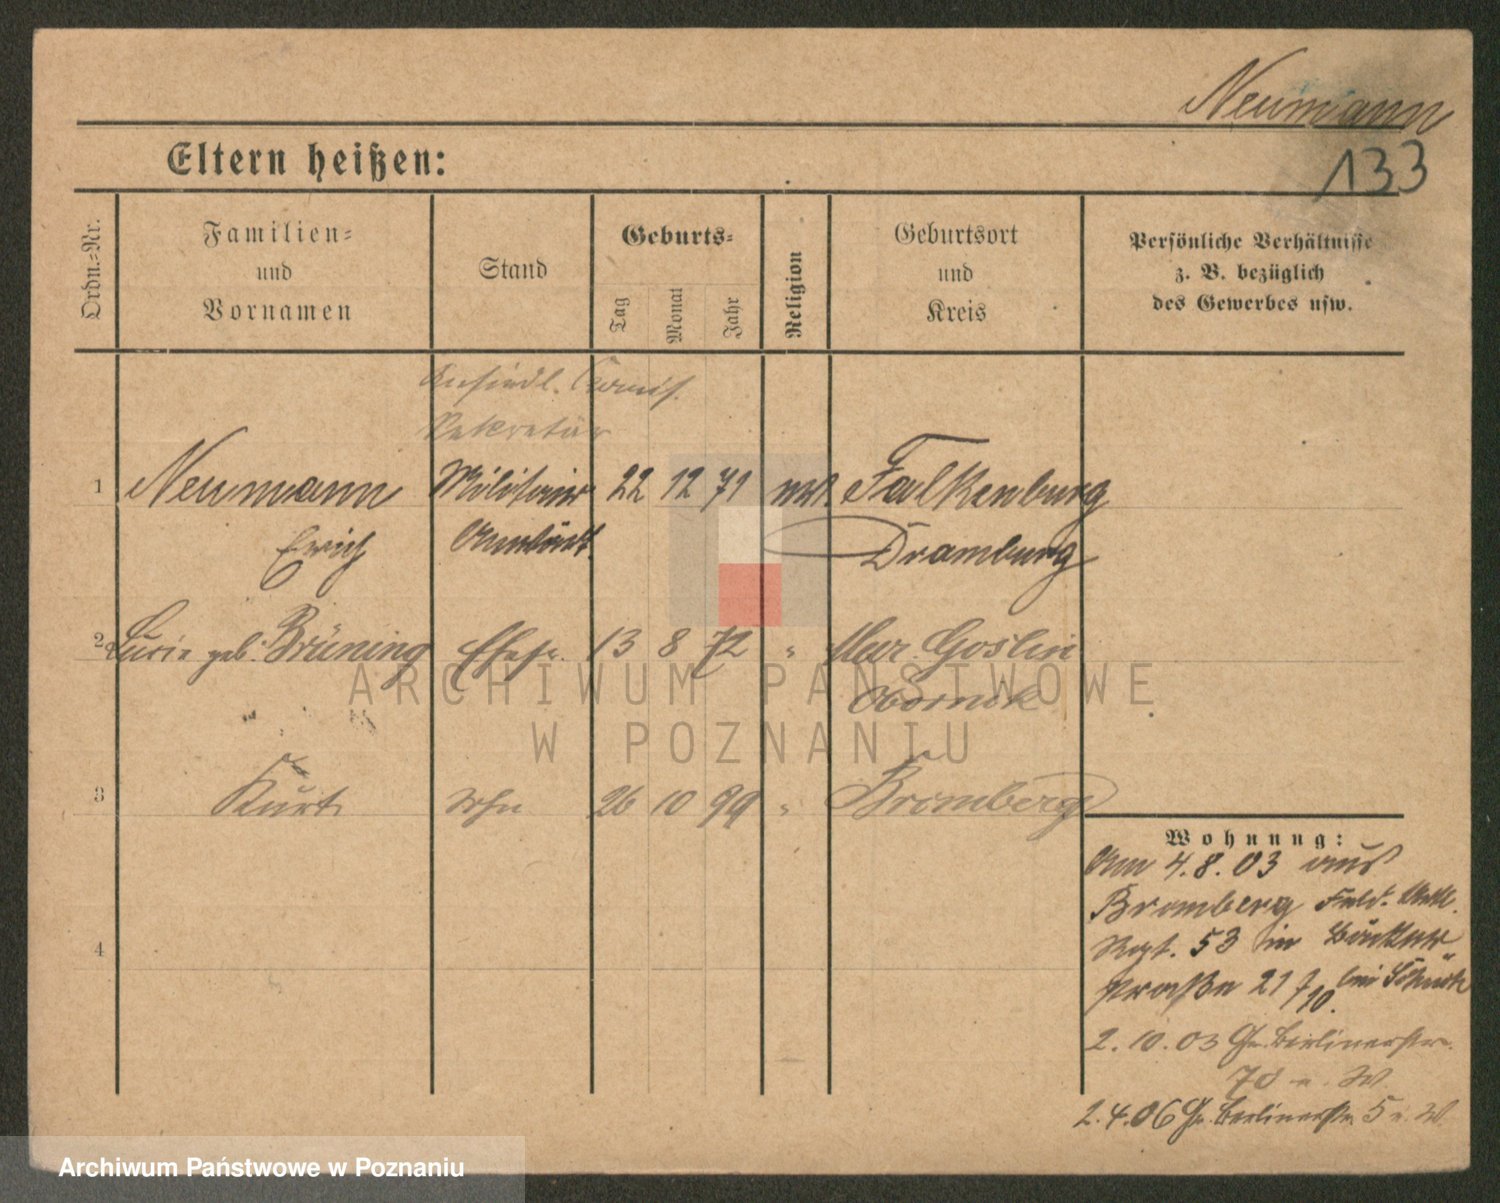 Neumann
133
Eltern heißen:
Ordn.-Nr.
Familien-
und
Vornamen
Stand
Geburts-
Tag
Monat
Jahr
Religion
Geburtsort
und
Kreis
Persönliche Verhältnisse
z. B. bezüglich
des Gewerbes usw.
Ansiedl.
Sekretär
1 Neumann Militair 22 12 71 Falkenburg
Erich Dramburg
2 geb. Brüning Ehefr. 13 8 72 " Mur. Goslin
Obornik
3 Kurt Sohn 26 10 99 " Bromberg
4
Wohnung:
Am 4.8.03 aus
Bromberg Feld. Artl.
Regt. 53 in Bäcker
straße 21 bei
2.10.03 Gr. Berlinerstr.
70 n. W.
2.4.06 Gr. Berlinerstr. 5 n. W.
ARCHIWUM PAŃSTWOWE
W POZNANIU
Archiwum Państwowe w Poznaniu